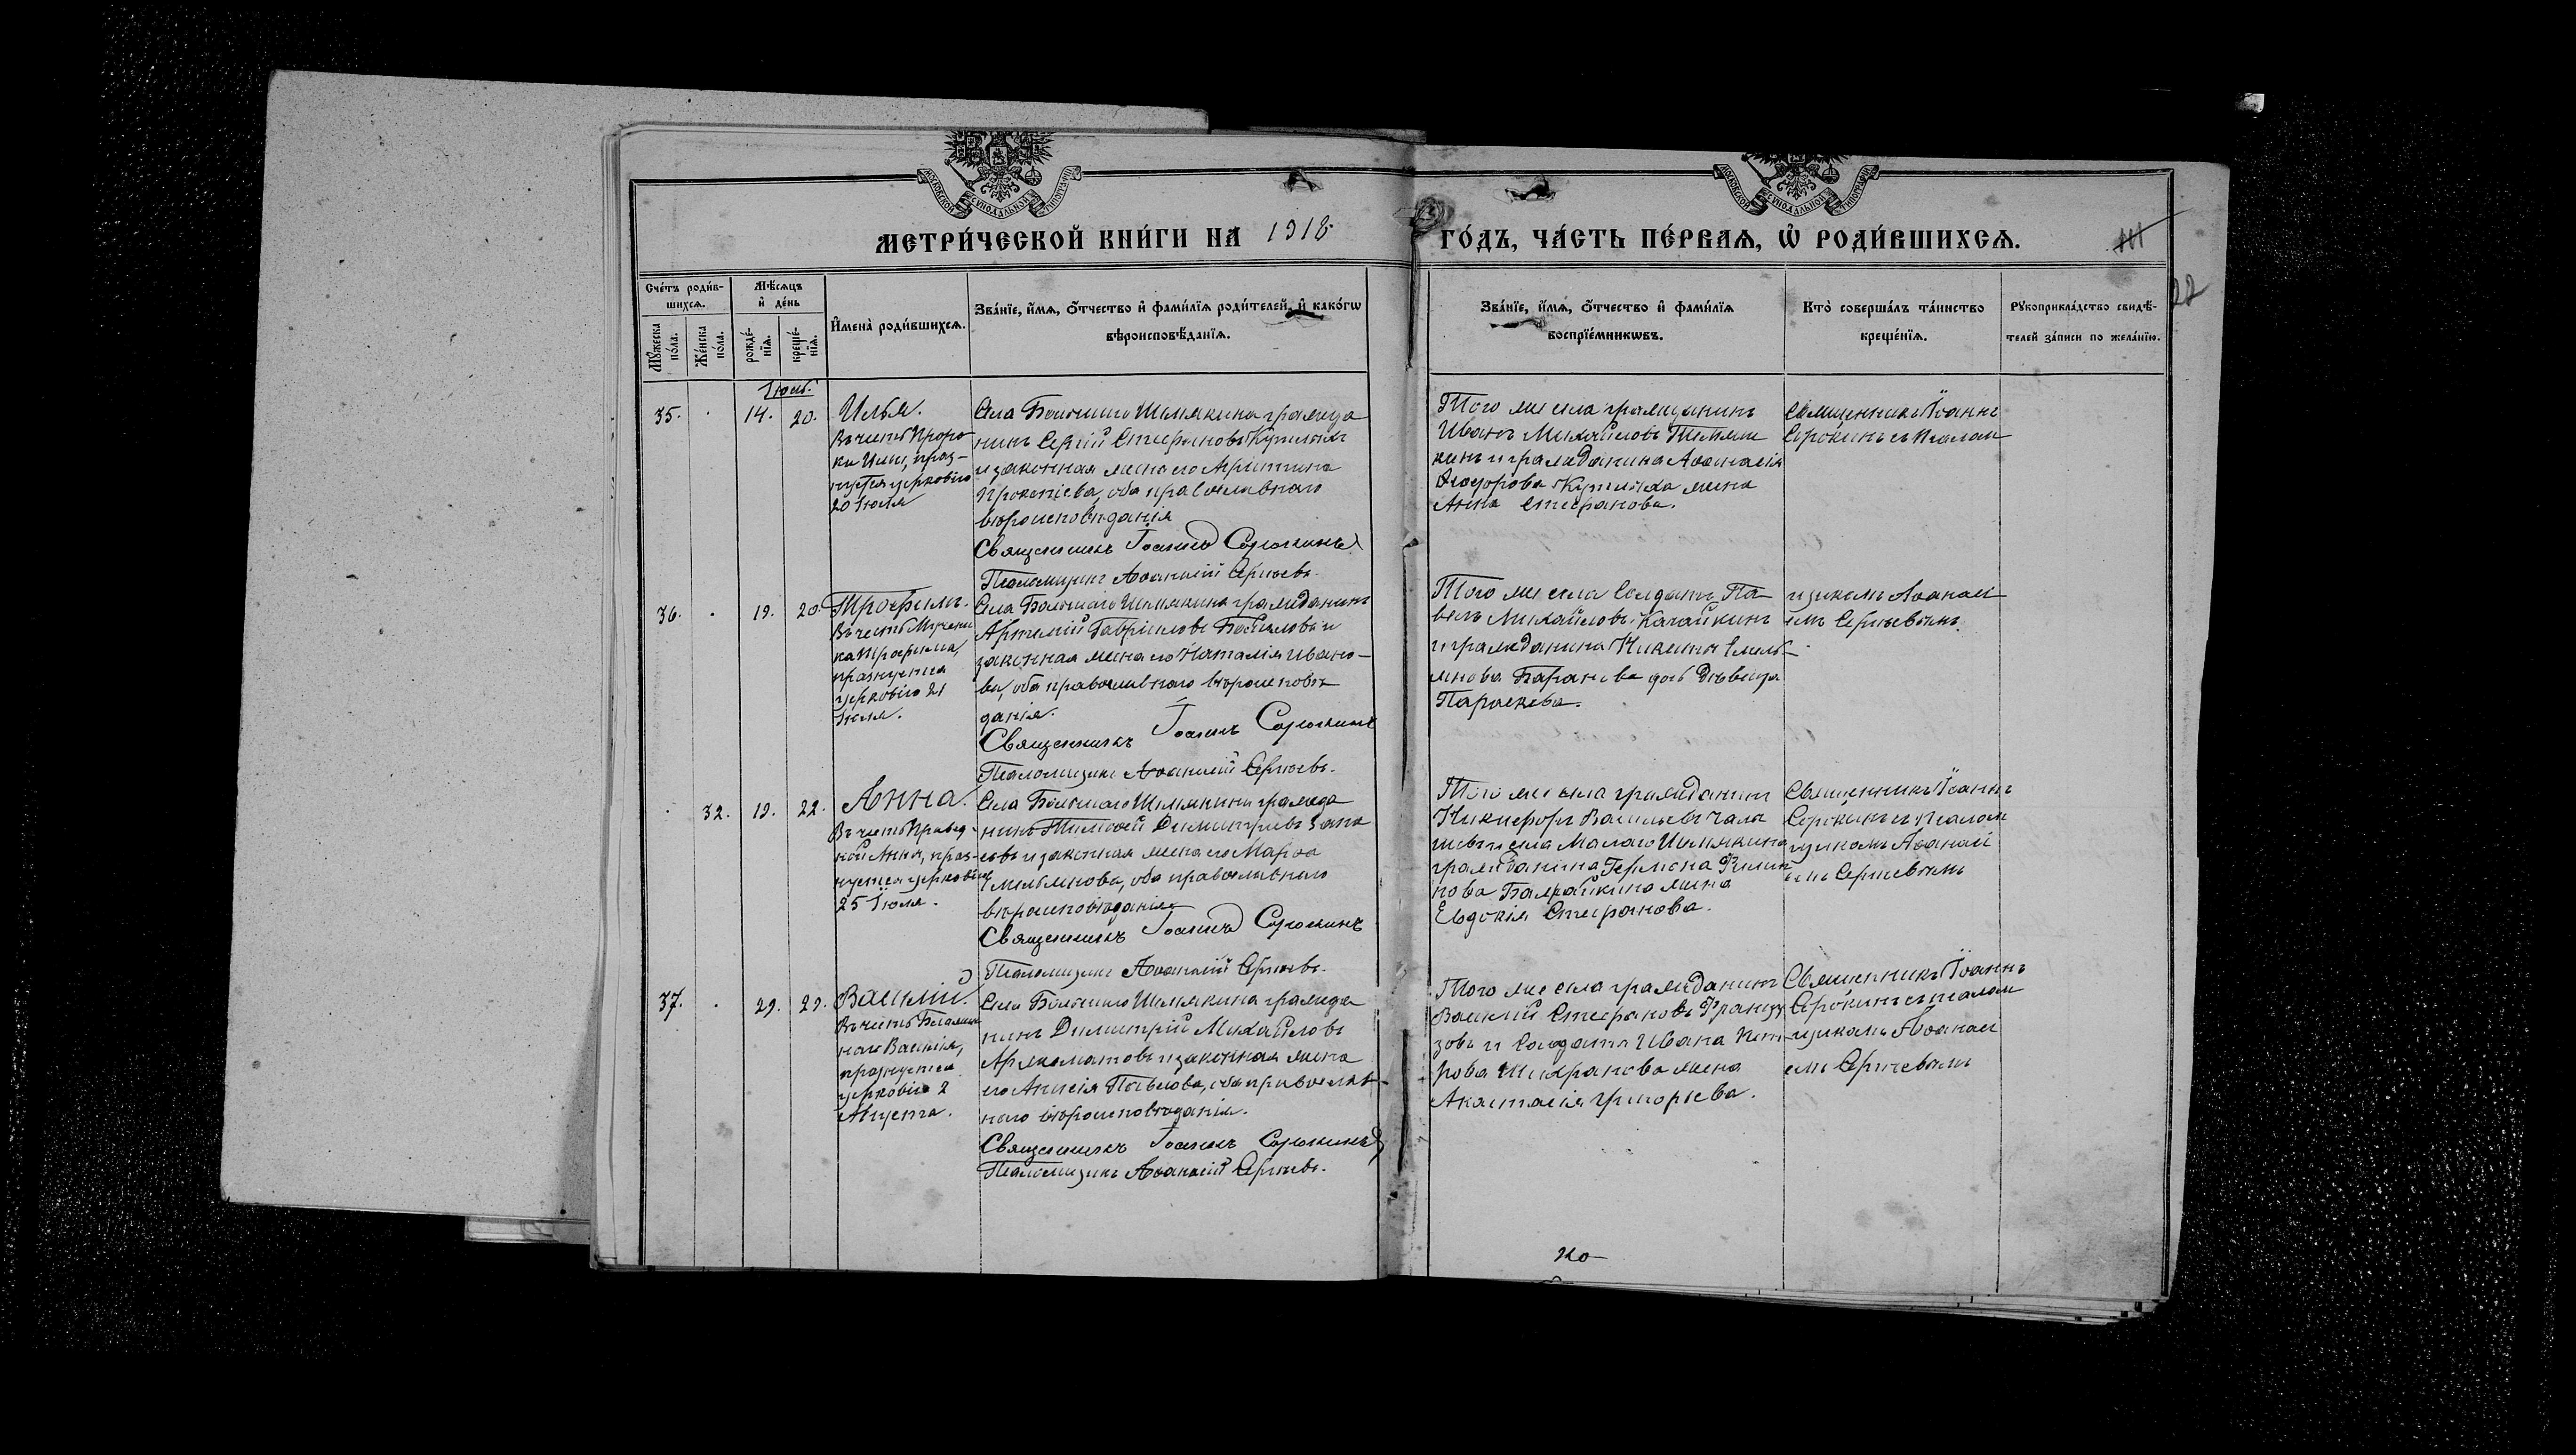 МОСКОВСКОЙ СѴНОДАЛЬНОЙ ТИПОГРАФІИ
МОСКОВСКОЙ СѴНОДАЛЬНОЙ ТИПОГРАФІИ
МЕТРИ́ЧЕСКОЙ КНИ́ГИ НА 1918
ГО́ДЪ, ЧА́СТЬ ПЕ́РВАѦ, Ѡ҆ РОДИ́ВШИХСѦ.
22
Сче́тъ роди́в-
шихсѧ.
Мѣ́сѧцъ
и҆ де́нь
Мꙋ́жеска
по́ла.
Же́нска
по́ла.
рожде́-
нїѧ.
креще́-
нїѧ.
И҆мена̀ роди́вшихсѧ.
Зва́нїе, и҆́мѧ, ѻ҆́тчество и҆ фами́лїѧ роди́телей, и҆ како́гѡ
вѣроисповѣ́данїѧ.
Зва́нїе, и҆́мѧ, ѻ҆́тчество и҆ фами́лїѧ
воспрїе́мникѡвъ.
Кто̀ соверша́лъ та́инство
креще́нїѧ.
Рꙋкоприкла́дство свидѣ́-
телей за́писи по жела́нїю.
Іюль.
35.
14.
20.
Илья.
Въ честь Проро-
ка Иліи, праз-
нуется церковію
20 Іюля
Села Большого Шемякина гражда
нинъ Сергій Стефановъ
и законная жена его Христина
Прокопіева, оба православнаго
вѣроисповѣданія
Священникъ Іоаннъ Сорокинъ
Псаломщикъ Аѳанасій Сергѣевъ.
Того же села гражданинъ
Иванъ Михайловъ
кинъ и гражданина Аѳанасія
Ѳеодорова жена
Анна Стефанова.
Священникъ Іоаннъ
Сорокинъ съ Псалом
36.
19.
20.
Трофимъ.
Въ честь Мучени
ка Трофима,
празнуется
церковію 21
Іюля.
Села Большого Шемякина гражданинъ
Артемій Гавріиловъ и
законная жена его Наталія Ивано-
ва, оба православнаго вѣроисповѣ
данія.
Священникъ Іоаннъ Сорокинъ
Псаломщикъ Аѳанасій Сергѣевъ.
Того же села Солдатъ Па
велъ Михайловъ Качайкинъ
и гражданина Никиты Емель
янова Баранова дочь Дѣвица
Параскева.
щикомъ Аѳанасі
емъ Сергѣевымъ.
32.
19.
22.
Анна.
Въ честь Правед-
ной Анны, праз-
нуется церковію
25 Іюля.
Села Большого Шемякина гражда
нинъ Тимоѳей Димитріевъ
и законная жена его Марѳа
Емельянова, оба православнаго
вѣроисповѣданія
Священникъ Іоаннъ Сорокинъ
Псаломщикъ Аѳанасій Сергѣевъ.
Того же села гражданинъ
Никифоръ Васильевъ
и села Малаго Шемякина
гражданина Германа Филип
пова жена
Евдокія Стефанова.
Священникъ Іоаннъ
Сорокинъ съ Псалом
щикомъ Аѳанасі
емъ Сергѣевымъ
37.
29.
29.
Василій.
Въ честь Блажен
наго Василія,
празнуется
церковію 2
Августа.
Села Большого Шемякина гражда
нинъ Димитрій Михайловъ
и законная жена
его Анисія Павлова, оба православ-
наго вѣроисповѣданія.
Священникъ Іоаннъ Сорокинъ
Псаломщикъ Аѳанасій Сергѣевъ.
Того же села гражданинъ
Василій Стефановъ Францу
зовъ и Солдата Ивана Пет
рова жена
Анастасія Григорьева.
Священникъ Іоаннъ
Сорокинъ съ псалом
щикомъ Аѳанасі
емъ Сергѣевымъ